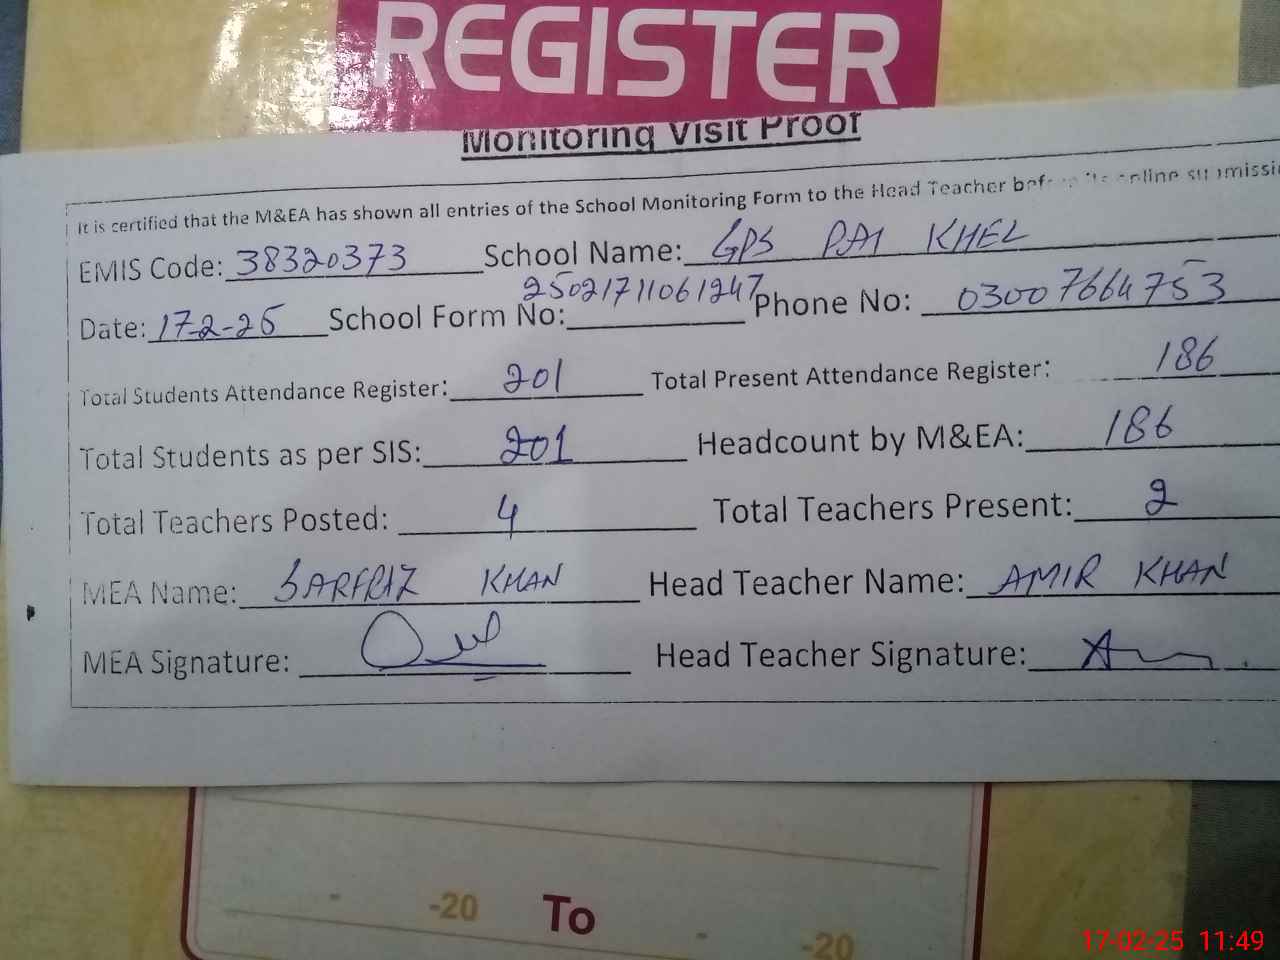 REGISTER
Monitoring Visit Proof
It is certified that the M&EA has shown all entries of the School Monitoring Form to the Head Teacher before its online submissi
EMIS Code: 38320373 School Name: GPS PAI KHEL
Date: 17-2-25 School Form No: 25021711061247 Phone No: 03007664753
Total Students Attendance Register: 201 Total Present Attendance Register: 186
Total Students as per SIS: 201 Headcount by M&EA: 186
Total Teachers Posted: 4 Total Teachers Present: 2
MEA Name: SARFRAZ KHAN Head Teacher Name: AMIR KHAN
MEA Signature: Head Teacher Signature:
- -20 To - -20
17-02-25 11:49